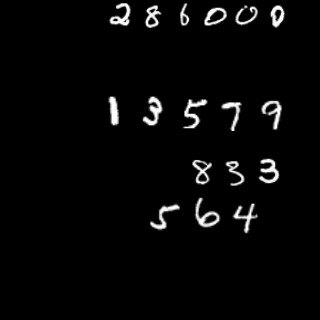 286000
13579
833
564